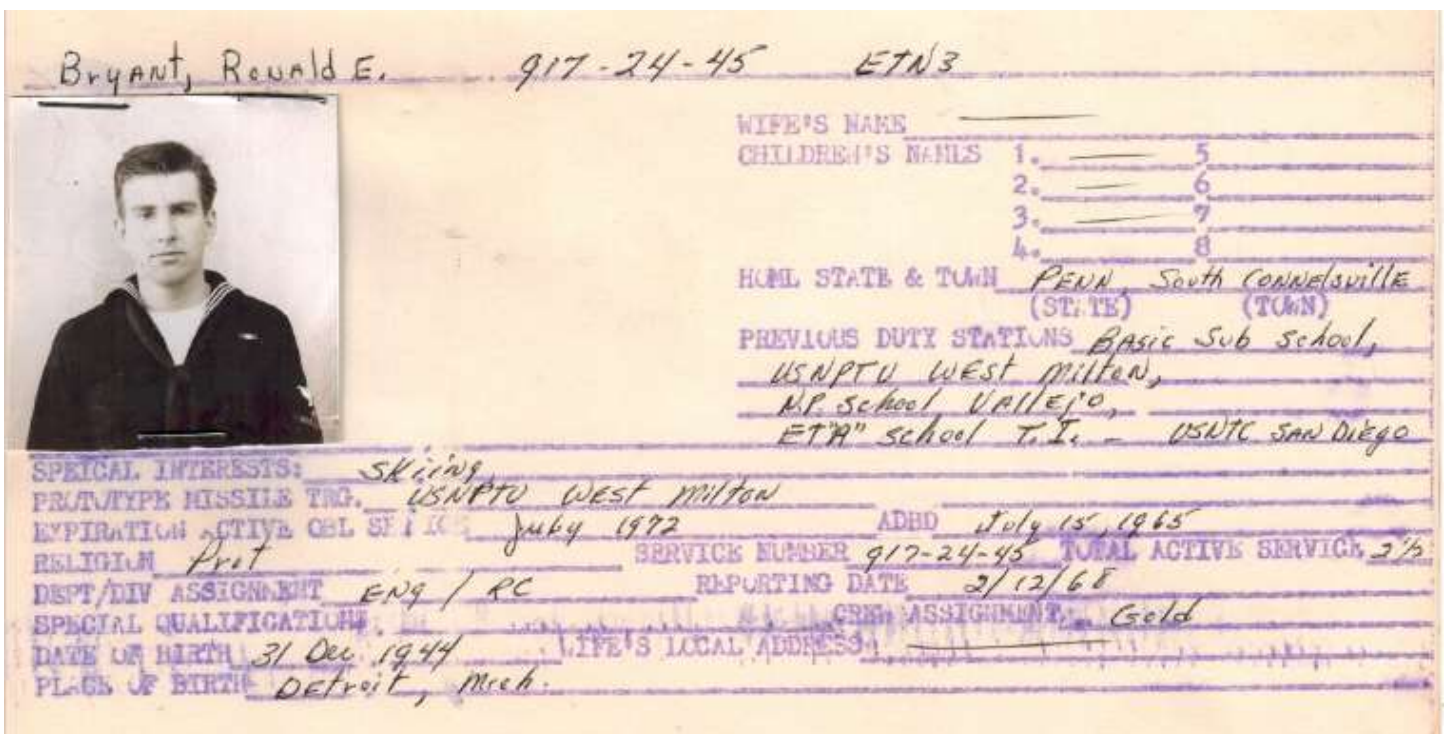 Bryant, Ronald E. 917-24-45 ETN3
WIFE'S NAME
CHILDREN'S NAMES 1. 5
2. 6
3. 7
4. 8
HOME STATE & TOWN PENN, South Connelsville
(STATE) (TOWN)
PREVIOUS DUTY STATIONS Basic Sub School,
USNPTU West Milton,
N.P. School Vallejo,
ET"A" School T.I. - USNTC San Diego
SPEICAL INTERESTS: Skiing
PROTOTYPE MISSILE TRG. USNPTU West Milton
EXPIRATION ACTIVE OBL SERVICE July 1972 ADBD July 15, 1965
RELIGION Prot SERVICE NUMBER 917-24-45 TOTAL ACTIVE SERVICE 2½
DEPT/DIV ASSIGNMENT Eng / RC REPORTING DATE 2/12/68
SPECIAL QUALIFICATIONS CREW ASSIGNMENT Gold
DATE OF BIRTH 31 Dec 1944 WIFE'S LOCAL ADDRESS
PLACE OF BIRTH Detroit, Mich.